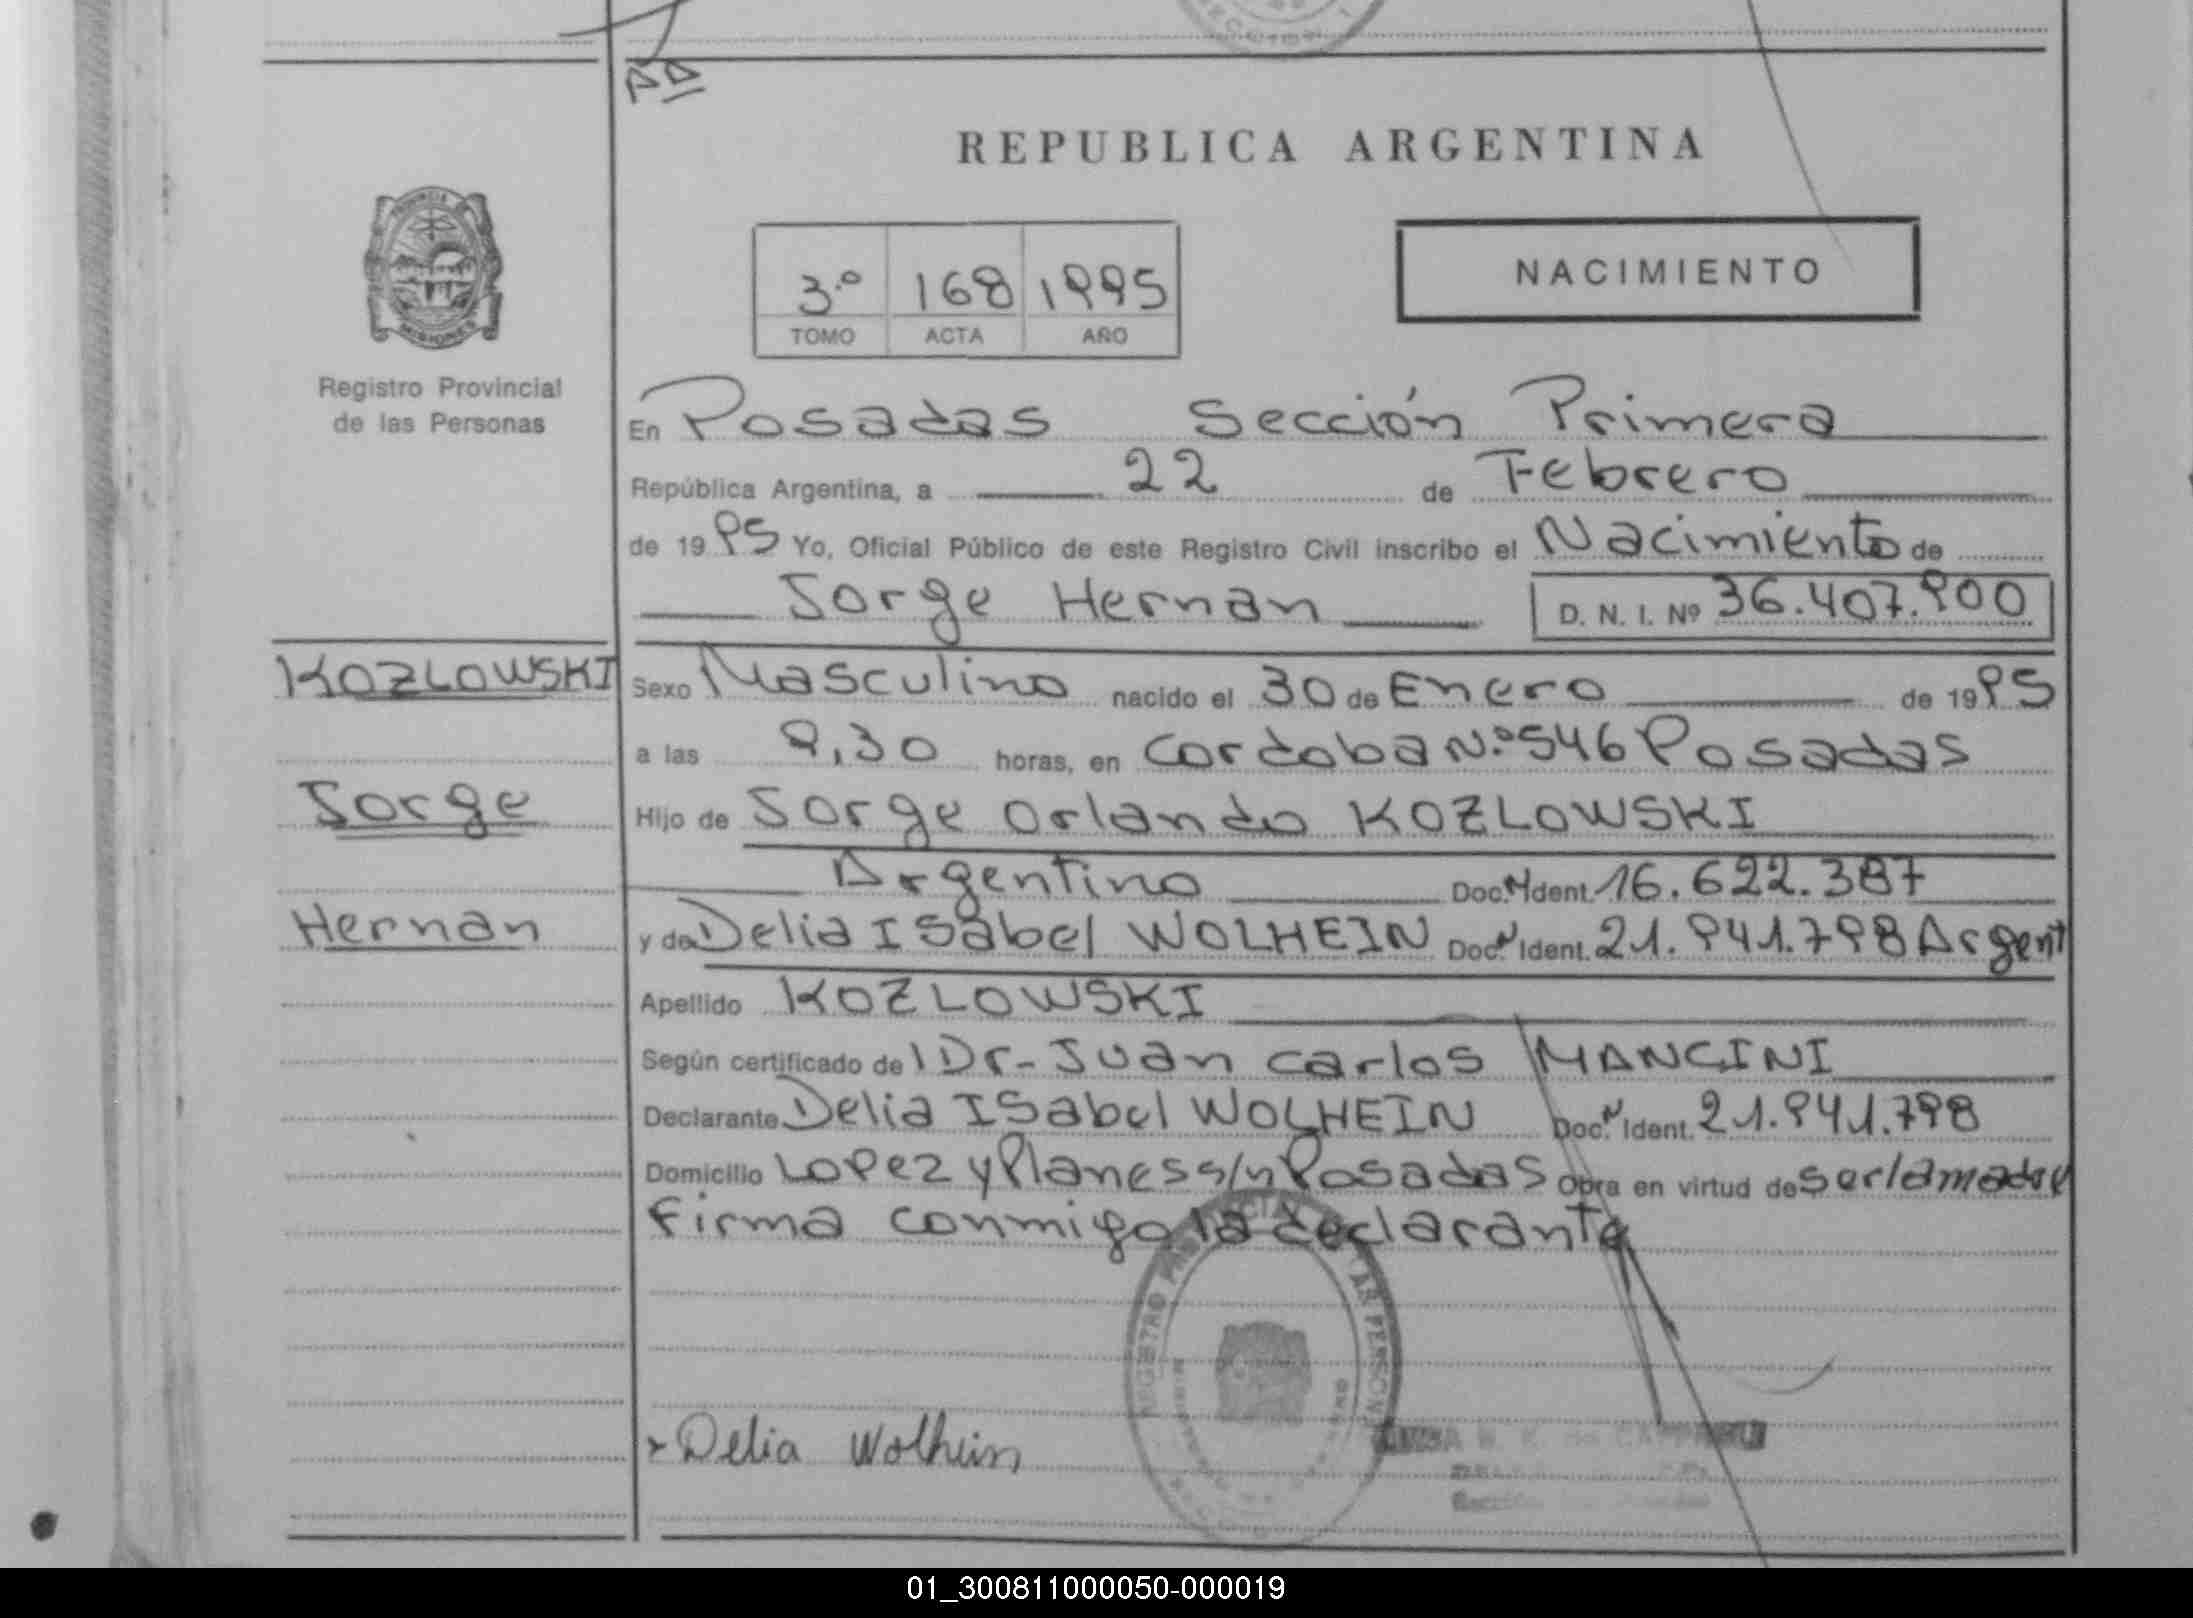 REPUBLICA ARGENTINA
3.º 168 1995
TOMO ACTA AÑO
NACIMIENTO
Registro Provincial
de las Personas
En Posadas Sección Primera
República Argentina, a 22 de Febrero
de 1995 Yo, Oficial Público de este Registro Civil inscribo el Nacimiento de
Jorge Hernan D. N. I. Nº 36.407.900
KOZLOWSKI
Jorge
Hernan
Sexo Masculino nacido el 30 de Enero de 1995
a las 9,30 horas, en Cordoba N.º 546 Posadas
Hijo de Jorge Orlando KOZLOWSKI
Argentino Doc. N Ident. 16.622.387
y de Delia Isabel WOLHEIN Doc. N Ident. 21.941.798 Argent
Apellido KOZLOWSKI
Según certificado de Dr- Juan Carlos MANCINI
Declarante Delia Isabel WOLHEIN Doc. N Ident. 21.941.798
Domicilio Lopez y Planes s/n Posadas Obra en virtud de ser la madre
Firma conmigo la declarante
Delia Wolhein
01_300811000050-000019